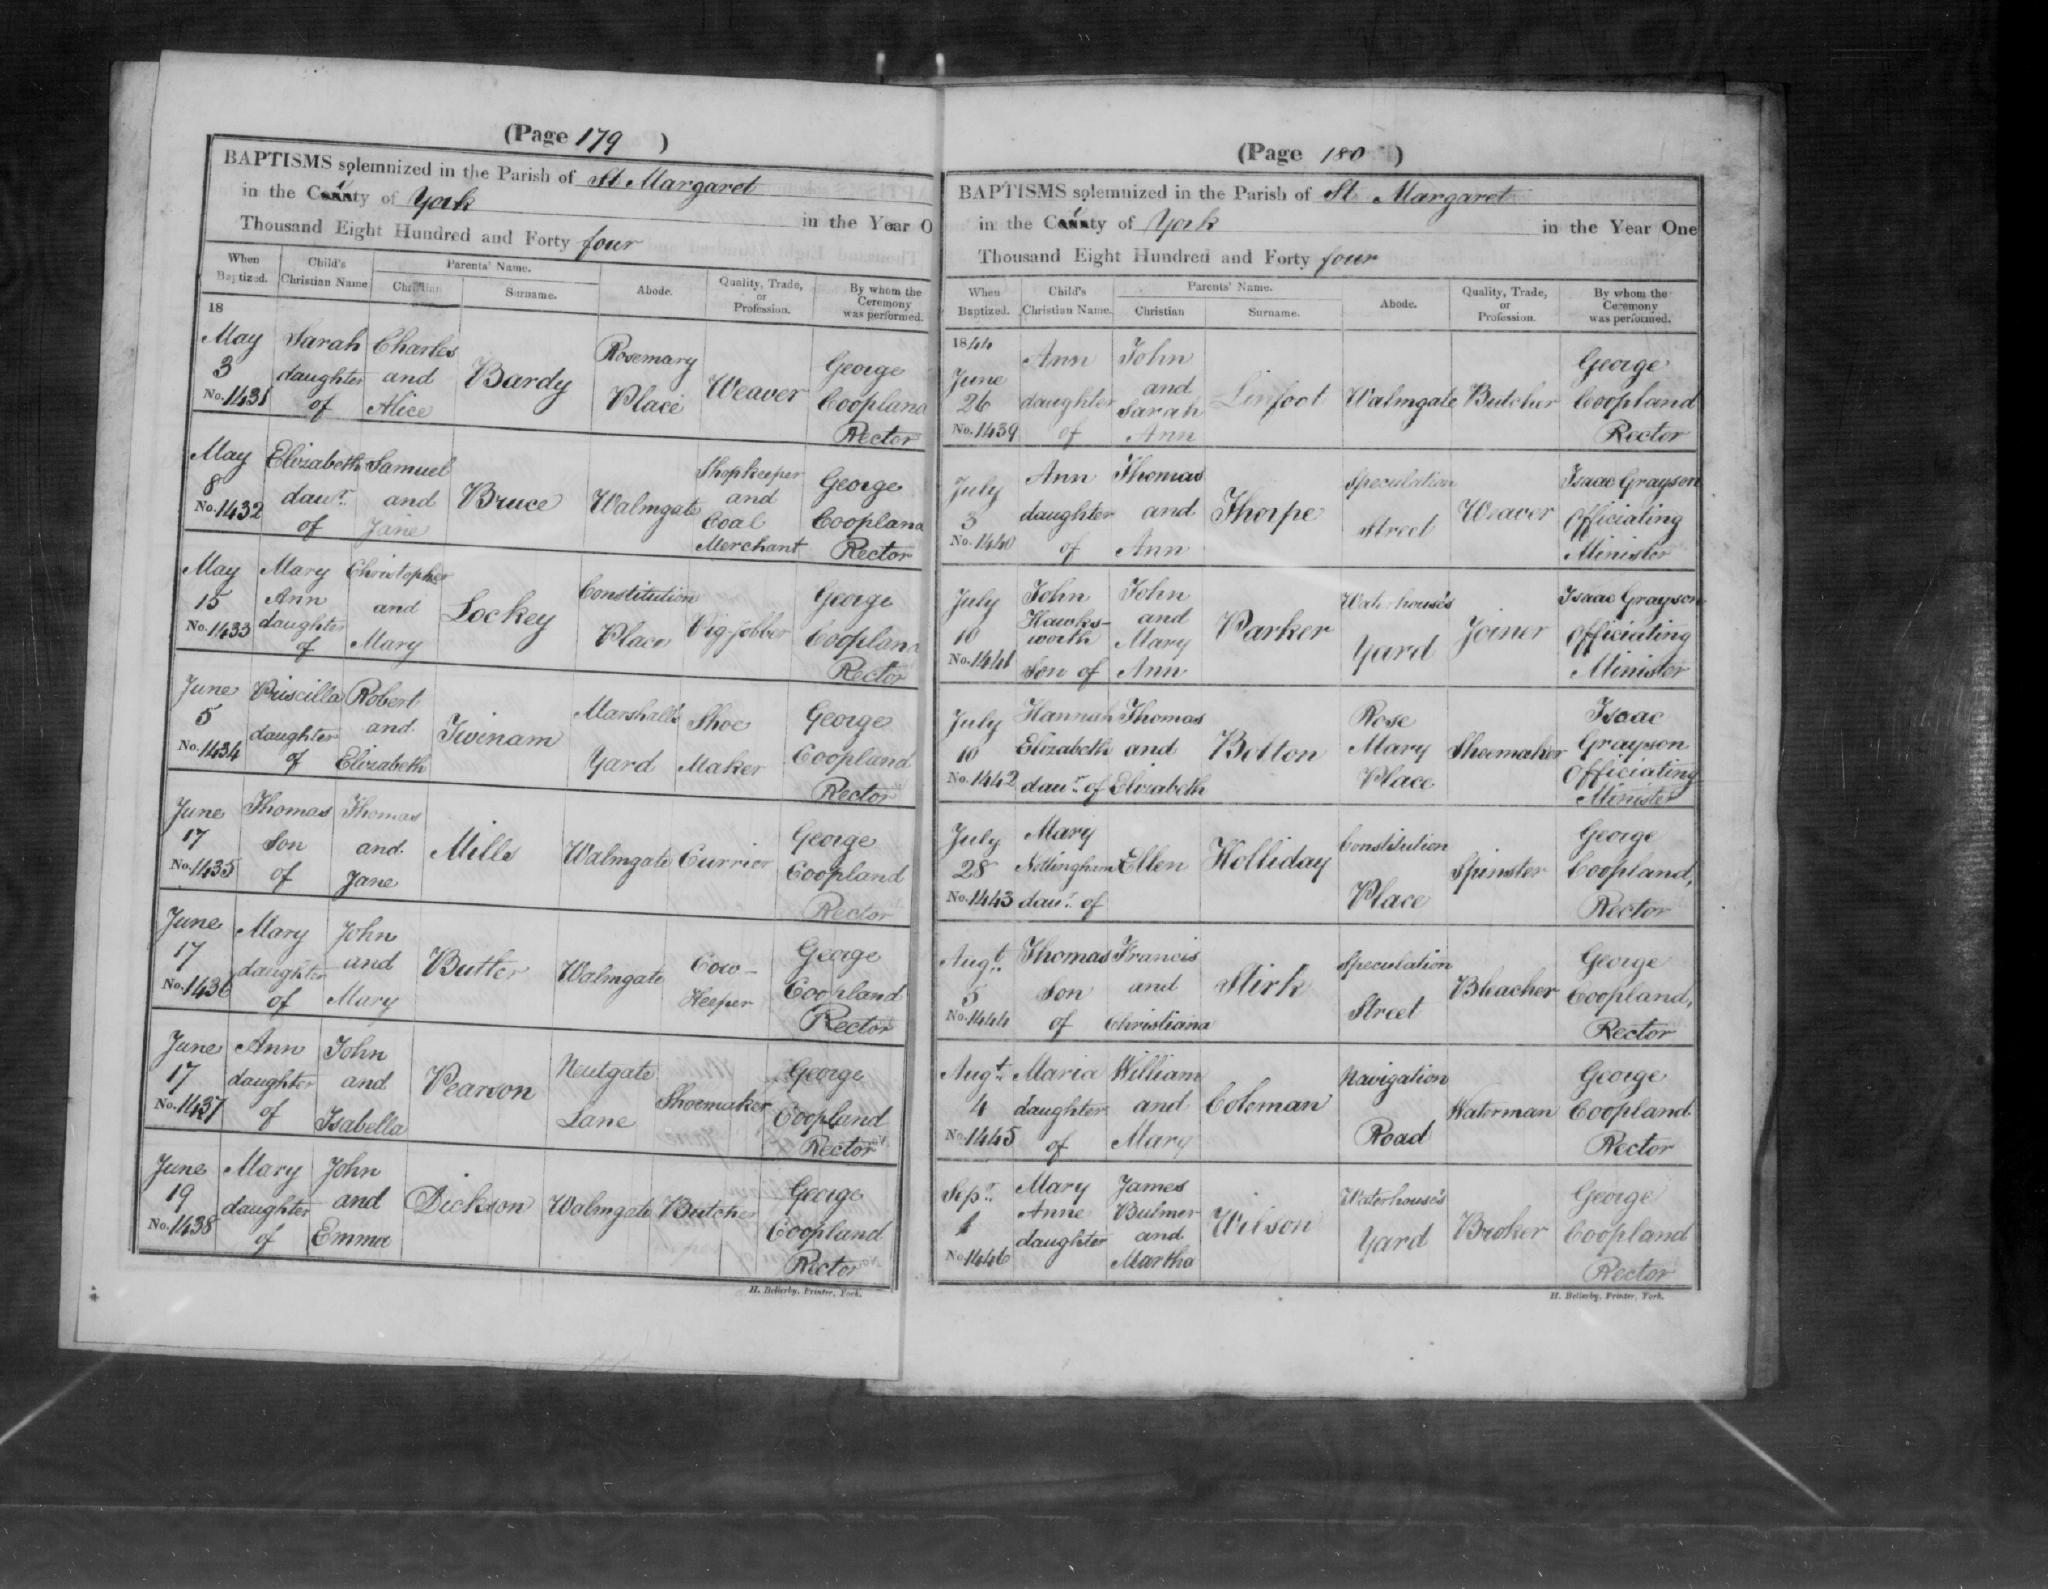 (Page 179 )
BAPTISMS solemnized in the Parish of St Margaret
in the City of York in the Year O
Thousand Eight Hundred and Forty four
When Baptized. Child's Christian Name Parents' Name. Christian Surname. Abode. Quality, Trade, or Profession. By whom the Ceremony was performed.
18
May 3 No. 1431 Sarah daughter of Charles and Alice Bardy Rosemary Place Weaver George Coopland Rector
May 8 No. 1432 Elizabeth daur. of Samuel and Jane Bruce Walmgate Shopkeeper and Coal Merchant George Coopland Rector
May 15 No. 1433 Mary Ann daughter of Christopher and Mary Lockey Constitution Place Pig-Jobber George Coopland Rector
June 5 No. 1434 Priscilla daughter of Robert and Elizabeth Twinam Marshall's Yard Shoe Maker George Coopland Rector
June 17 No. 1435 Thomas Son of Thomas and Jane Mills Walmgate Currier George Coopland Rector
June 17 No. 1436 Mary daughter of John and Mary Butler Walmgate Cow-Keeper George Coopland Rector
June 17 No. 1437 Ann daughter of John and Isabella Pearson Neutgate Lane Shoemaker George Coopland Rector
June 19 No. 1438 Mary daughter of John and Emma Dickson Walmgate Butcher George Coopland Rector
H. Bellerby, Printer, York.
(Page 180 )
BAPTISMS solemnized in the Parish of St Margaret
in the City of York in the Year One
Thousand Eight Hundred and Forty four
When Baptized. Child's Christian Name. Parents' Name. Christian Surname. Abode. Quality, Trade, or Profession. By whom the Ceremony was performed.
1844
June 26 No. 1439 Ann daughter of John and Sarah Ann Linfoot Walmgate Butcher George Coopland Rector
July 3 No. 1440 Ann daughter of Thomas and Ann Thorpe Speculation Street Weaver Isaac Grayson Officiating Minister
July 10 No. 1441 John Hawks-worth Son of John and Mary Ann Parker Waterhouse's Yard Joiner Isaac Grayson Officiating Minister
July 10 No. 1442 Hannah Elizabeth daur. of Thomas and Elizabeth Botton Rose Mary Place Shoemaker Isaac Grayson Officiating Minister
July 28 No. 1443 Mary Nottingham daur. of Ellen Holliday Constitution Place Spinster George Coopland, Rector
Augt. 5 No. 1444 Thomas Son of Francis and Christiana Stirk Speculation Street Bleacher George Coopland, Rector
Augt. 4 No. 1445 Maria daughter of William and Mary Coleman Navigation Road Waterman George Coopland Rector
Sepr. 1 No. 1446 Mary Anne daughter James Bulmer and Martha Wilson Waterhouse's Yard Broker George Coopland Rector
H. Bellerby, Printer, York.